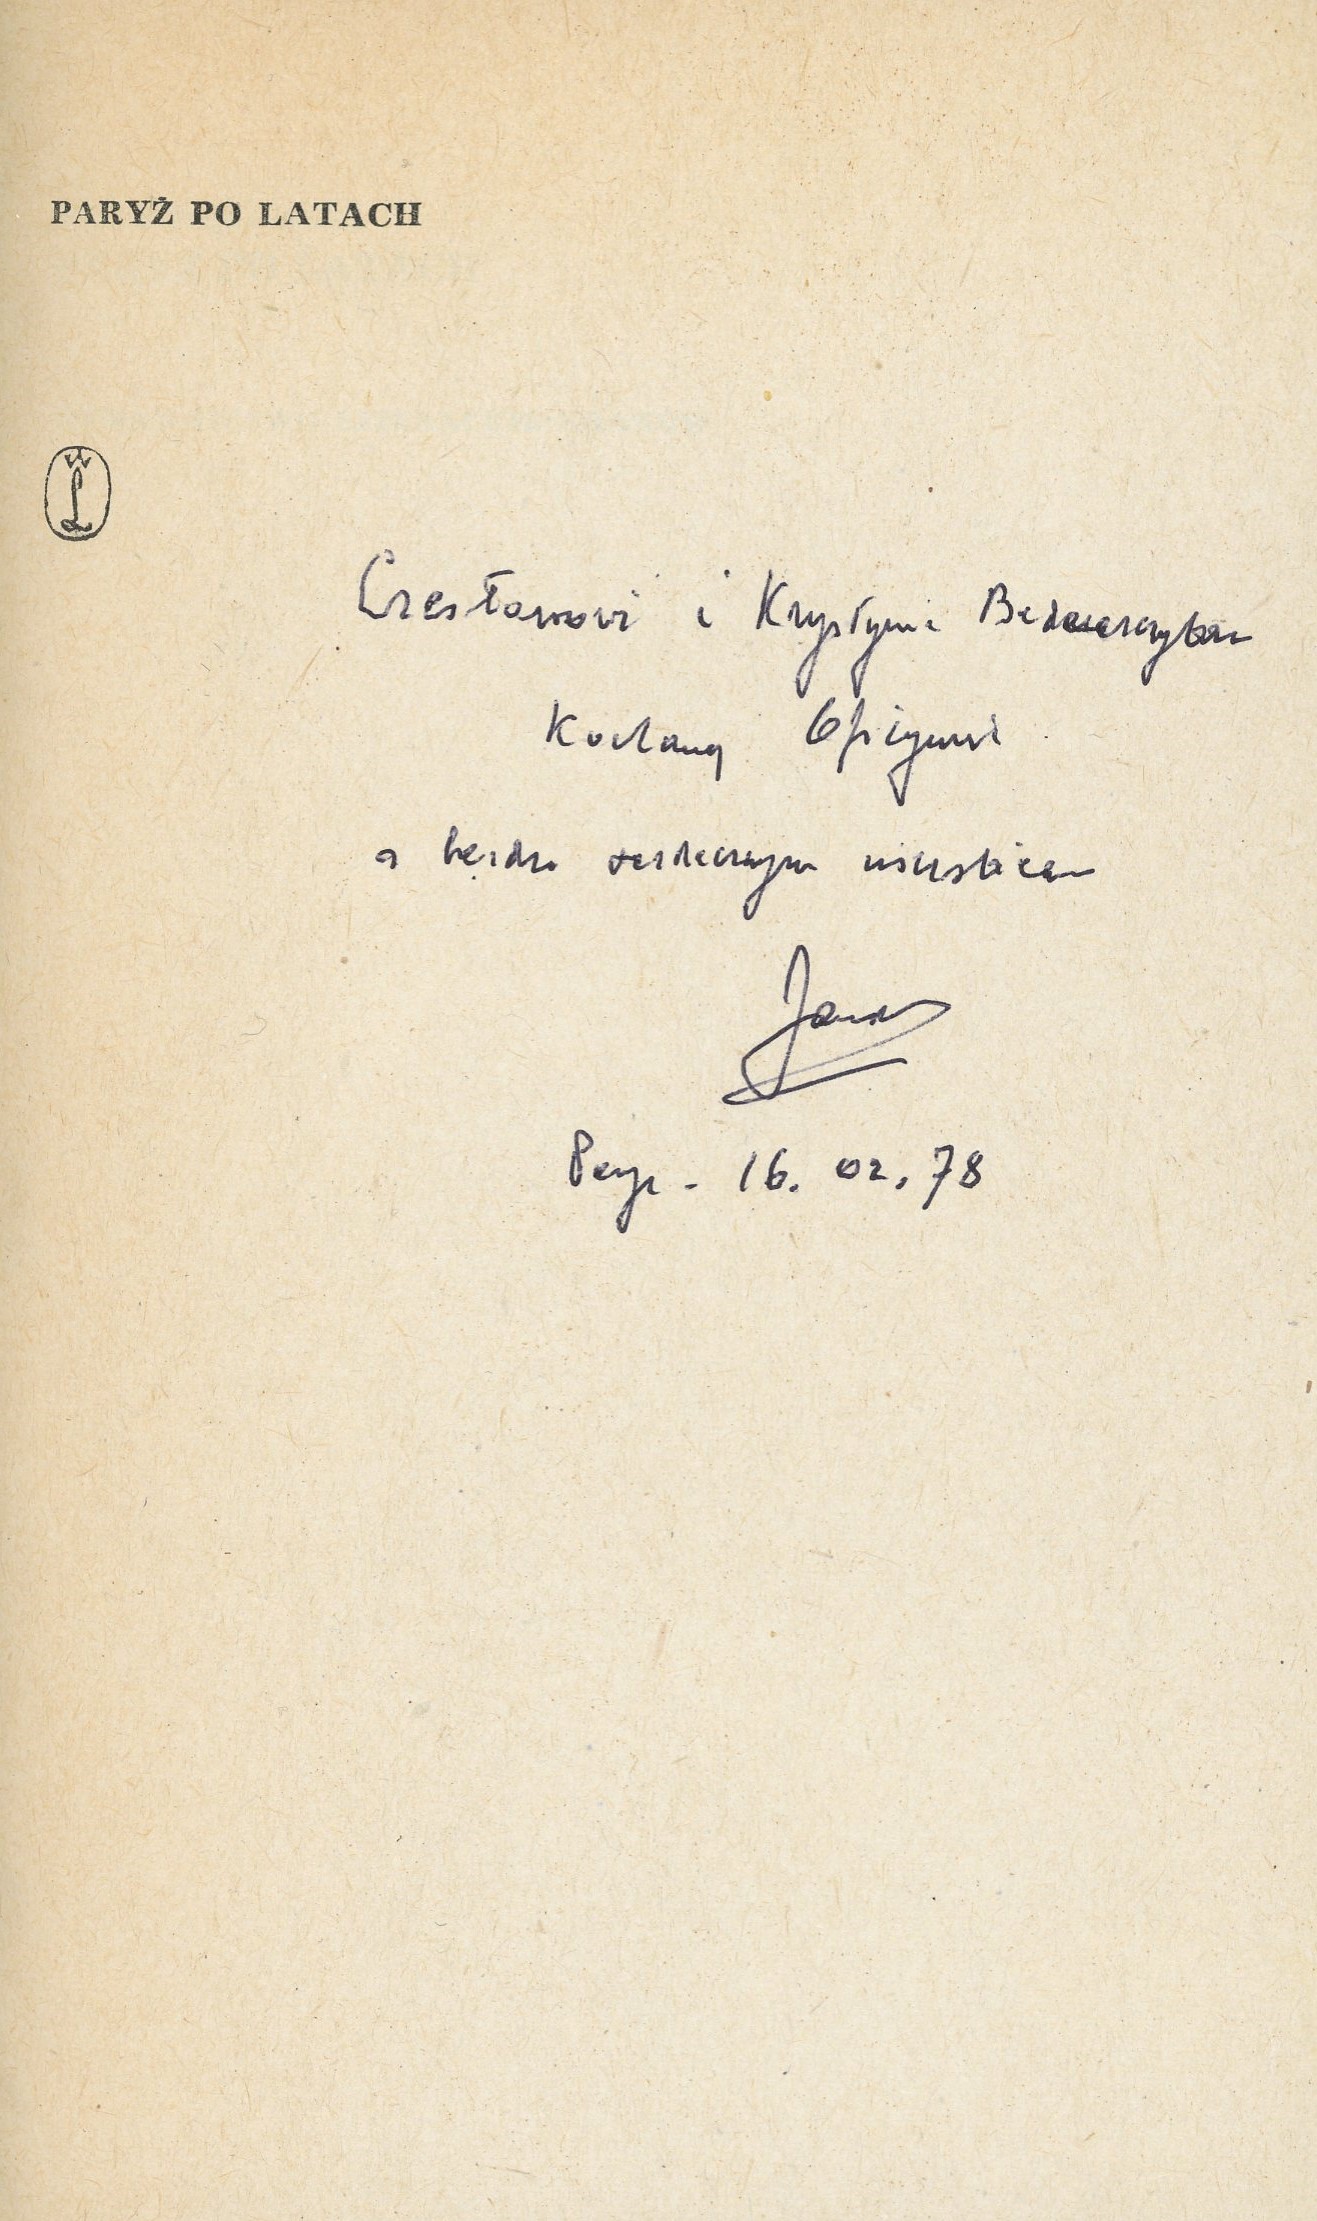 PARYŻ PO LATACH
WL
Czesławowi i Krystynie Bednarczykom
Kochanym Oficynnikom
z bardzo serdecznym uściskiem
Janusz
Paryż - 16. 02. 78